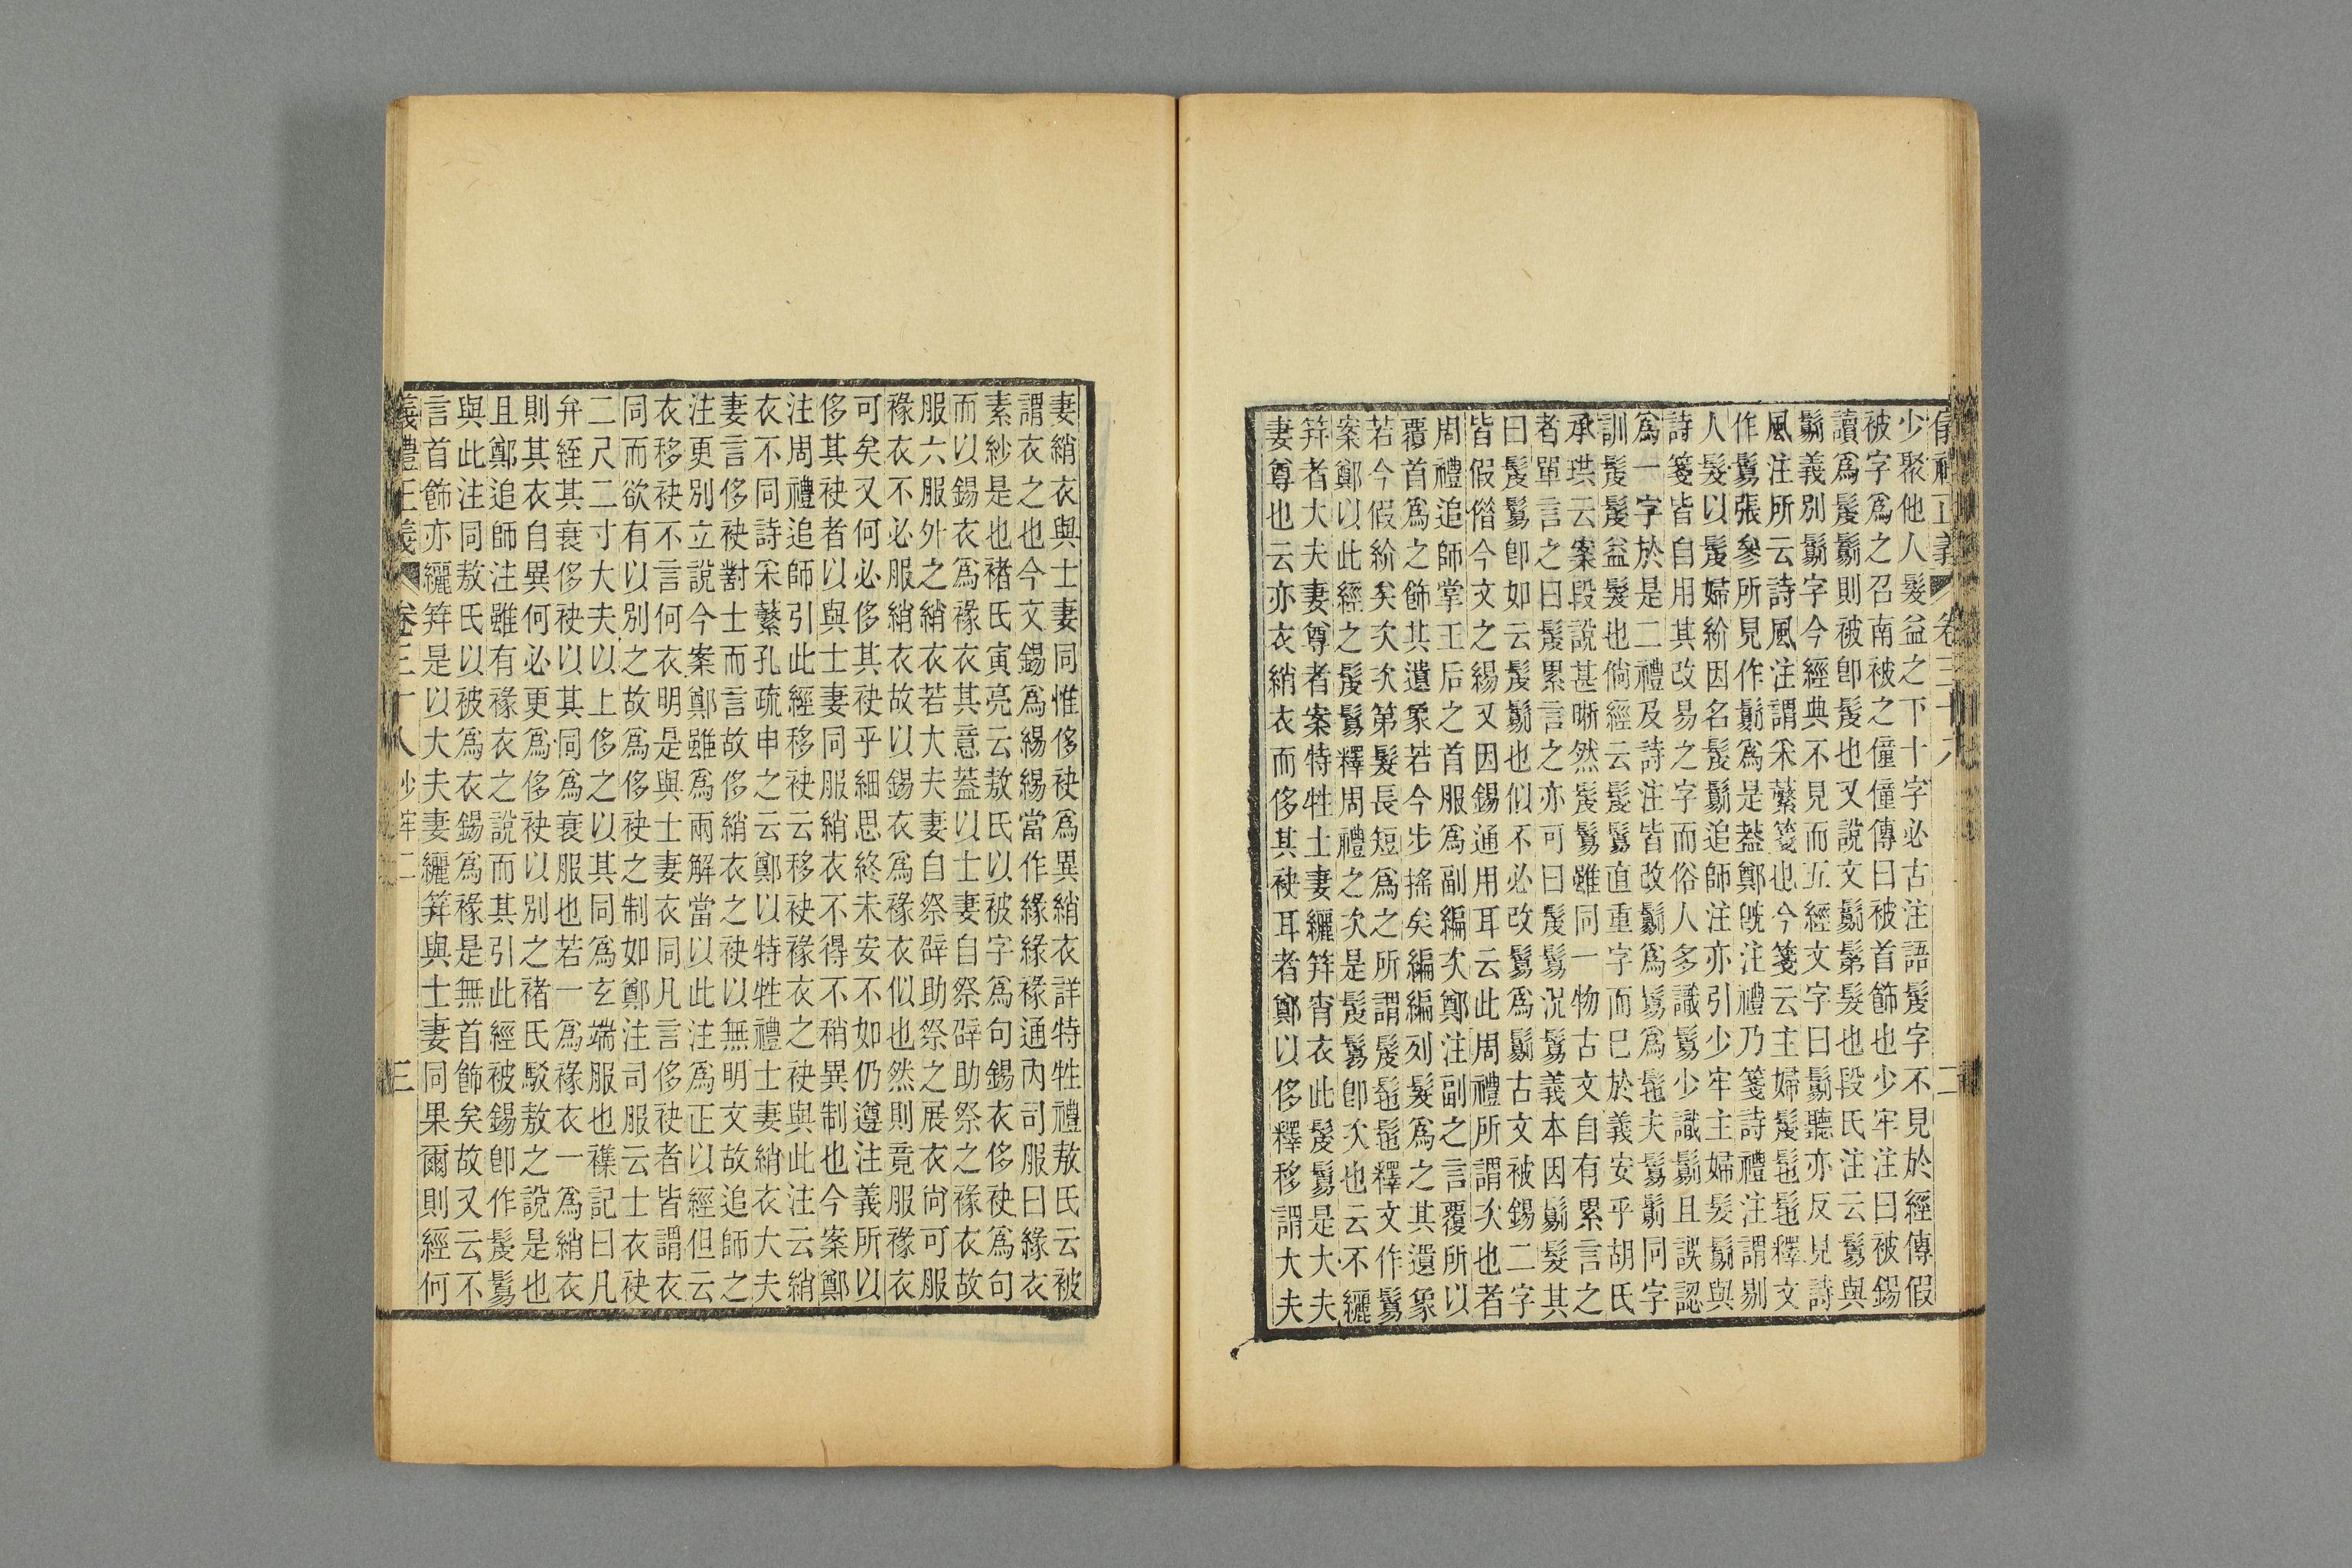 儀禮正義 卷三十八 二
少聚他人髮益之下十字必古注語髲字不見於經傳假
被字爲之召南被之僮僮傳曰被首飾也少牢注曰被錫
讀爲髲鬄則被卽髲也又說文鬄鬄髮也段氏注云鬄與
鬄義別鬄字今經典不見而五經文字曰鬄聽亦反見詩
風注所云詩風注謂采蘩箋也今箋云主婦髲髢髢釋文
作鬄張參所見作鬄爲是葢鄭旣注禮乃箋詩禮注謂剔
人髮以髲婦紒因名髲鬄追師注亦引少牢主婦髮鬄與
詩箋皆自用其改易之字而俗人多識鬄少識鬄且誤認
爲一字於是二禮及詩注皆改鬄爲鬄爲髢夫鬄鬄同字
訓髲髲益髮也倘經云髲鬄直重字而已於義安乎胡氏
承珙云案段說甚晰然髲鬄雖同一物古文自有累言之
者單言之曰髲累言之亦可曰髲鬄況鬄義本因鬄髮其
曰髲鬄卽如云髲鬄也似不必改鬄爲鬄古文被錫二字
皆假借今文之緆又因錫通用耳云此周禮所謂次也者
周禮追師掌王后之首服爲副編次鄭注副之言覆所以
覆首爲之飾其遺象若今步搖矣編編列髮爲之其遺象
若今假紒矣次次第髮長短爲之所謂髲髢釋文作鬄
案鄭以此經之髲鬄釋周禮之次是髲鬄卽次也云不纚
笄者大夫妻尊者案特牲士妻纚笄宵衣此髲鬄是大夫
妻尊也云亦衣綃衣而侈其袂耳者鄭以侈釋移謂大夫
妻綃衣與士妻同惟侈袂爲異綃衣詳特牲禮敖氏云被
謂衣之也今文錫爲緆緆當作緣緣褖通內司服曰緣衣
素紗是也褚氏寅亮云敖氏以被字爲句錫衣侈袂爲句
而以錫衣爲褖衣其意葢以士妻自祭辟助祭之褖衣故
服六服外之綃衣若大夫妻自祭辟助祭之展衣尚可服
褖衣不必服綃衣故以錫衣爲褖衣似也然則竟服褖衣
可矣又何必侈其袂乎細思終未安不如仍遵注義所以
侈其袂者以與士妻同服綃衣不得不稍異制也今案鄭
注周禮追師引此經移袂云移袂褖衣之袂與此注云綃
衣不同詩采蘩孔疏申之云鄭以特牲禮士妻綃衣大夫
妻言侈袂對士而言故侈綃衣之袂以無明文故追師之
注更別立說今案鄭雖爲兩解當以此注爲正以經但云
衣移袂不言何衣明是與士妻衣同凡言侈袂者皆謂衣
同而欲有以別之故爲侈袂之制如鄭注司服云士衣袂
二尺二寸大夫以上侈之以其同爲玄端服也襍記曰凡
弁絰其衰侈袂以其同爲衰服也若一爲褖衣一爲綃衣
則其衣自異何必更爲侈袂以別之褚氏駁敖之說是也
且鄭追師注雖有褖衣之說而其引此經被錫卽作髲鬄
與此注同敖氏以被爲衣錫爲褖是無首飾矣故又云不
言首飾亦纚笄是以大夫妻纚笄與士妻同果爾則經何
儀禮正義 卷三十八 少牢二 三